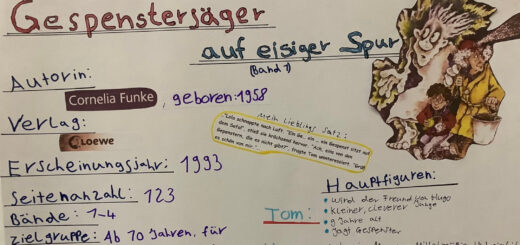 Gespensterjäger
auf eisiger Spur
(Band 1)
Autorin:
Cornelia Funke, geboren: 1958
Verlag:
Loewe
Mein Lieblings Satz:
"Lola schnappte nach Luft. "Ein Ge... ein ... ein Gespenst sitzt auf
dem Sofa", stieß sie krächzend hervor. "Ach, eins von den
Gespenstern, die es nicht gibt?", fragte Tom interessiert. "Grüß
es schön von mir."
Erscheinungsjahr: 1993
Seitenanzahl: 123
Bände: 1-4
Zielgruppe: Ab 10 Jahren, für
Hauptfiguren:
Tom:
• wird der Freund von Hugo
• kleiner, cleverer Junge
• 9 Jahre alt
• jagt Gespenster